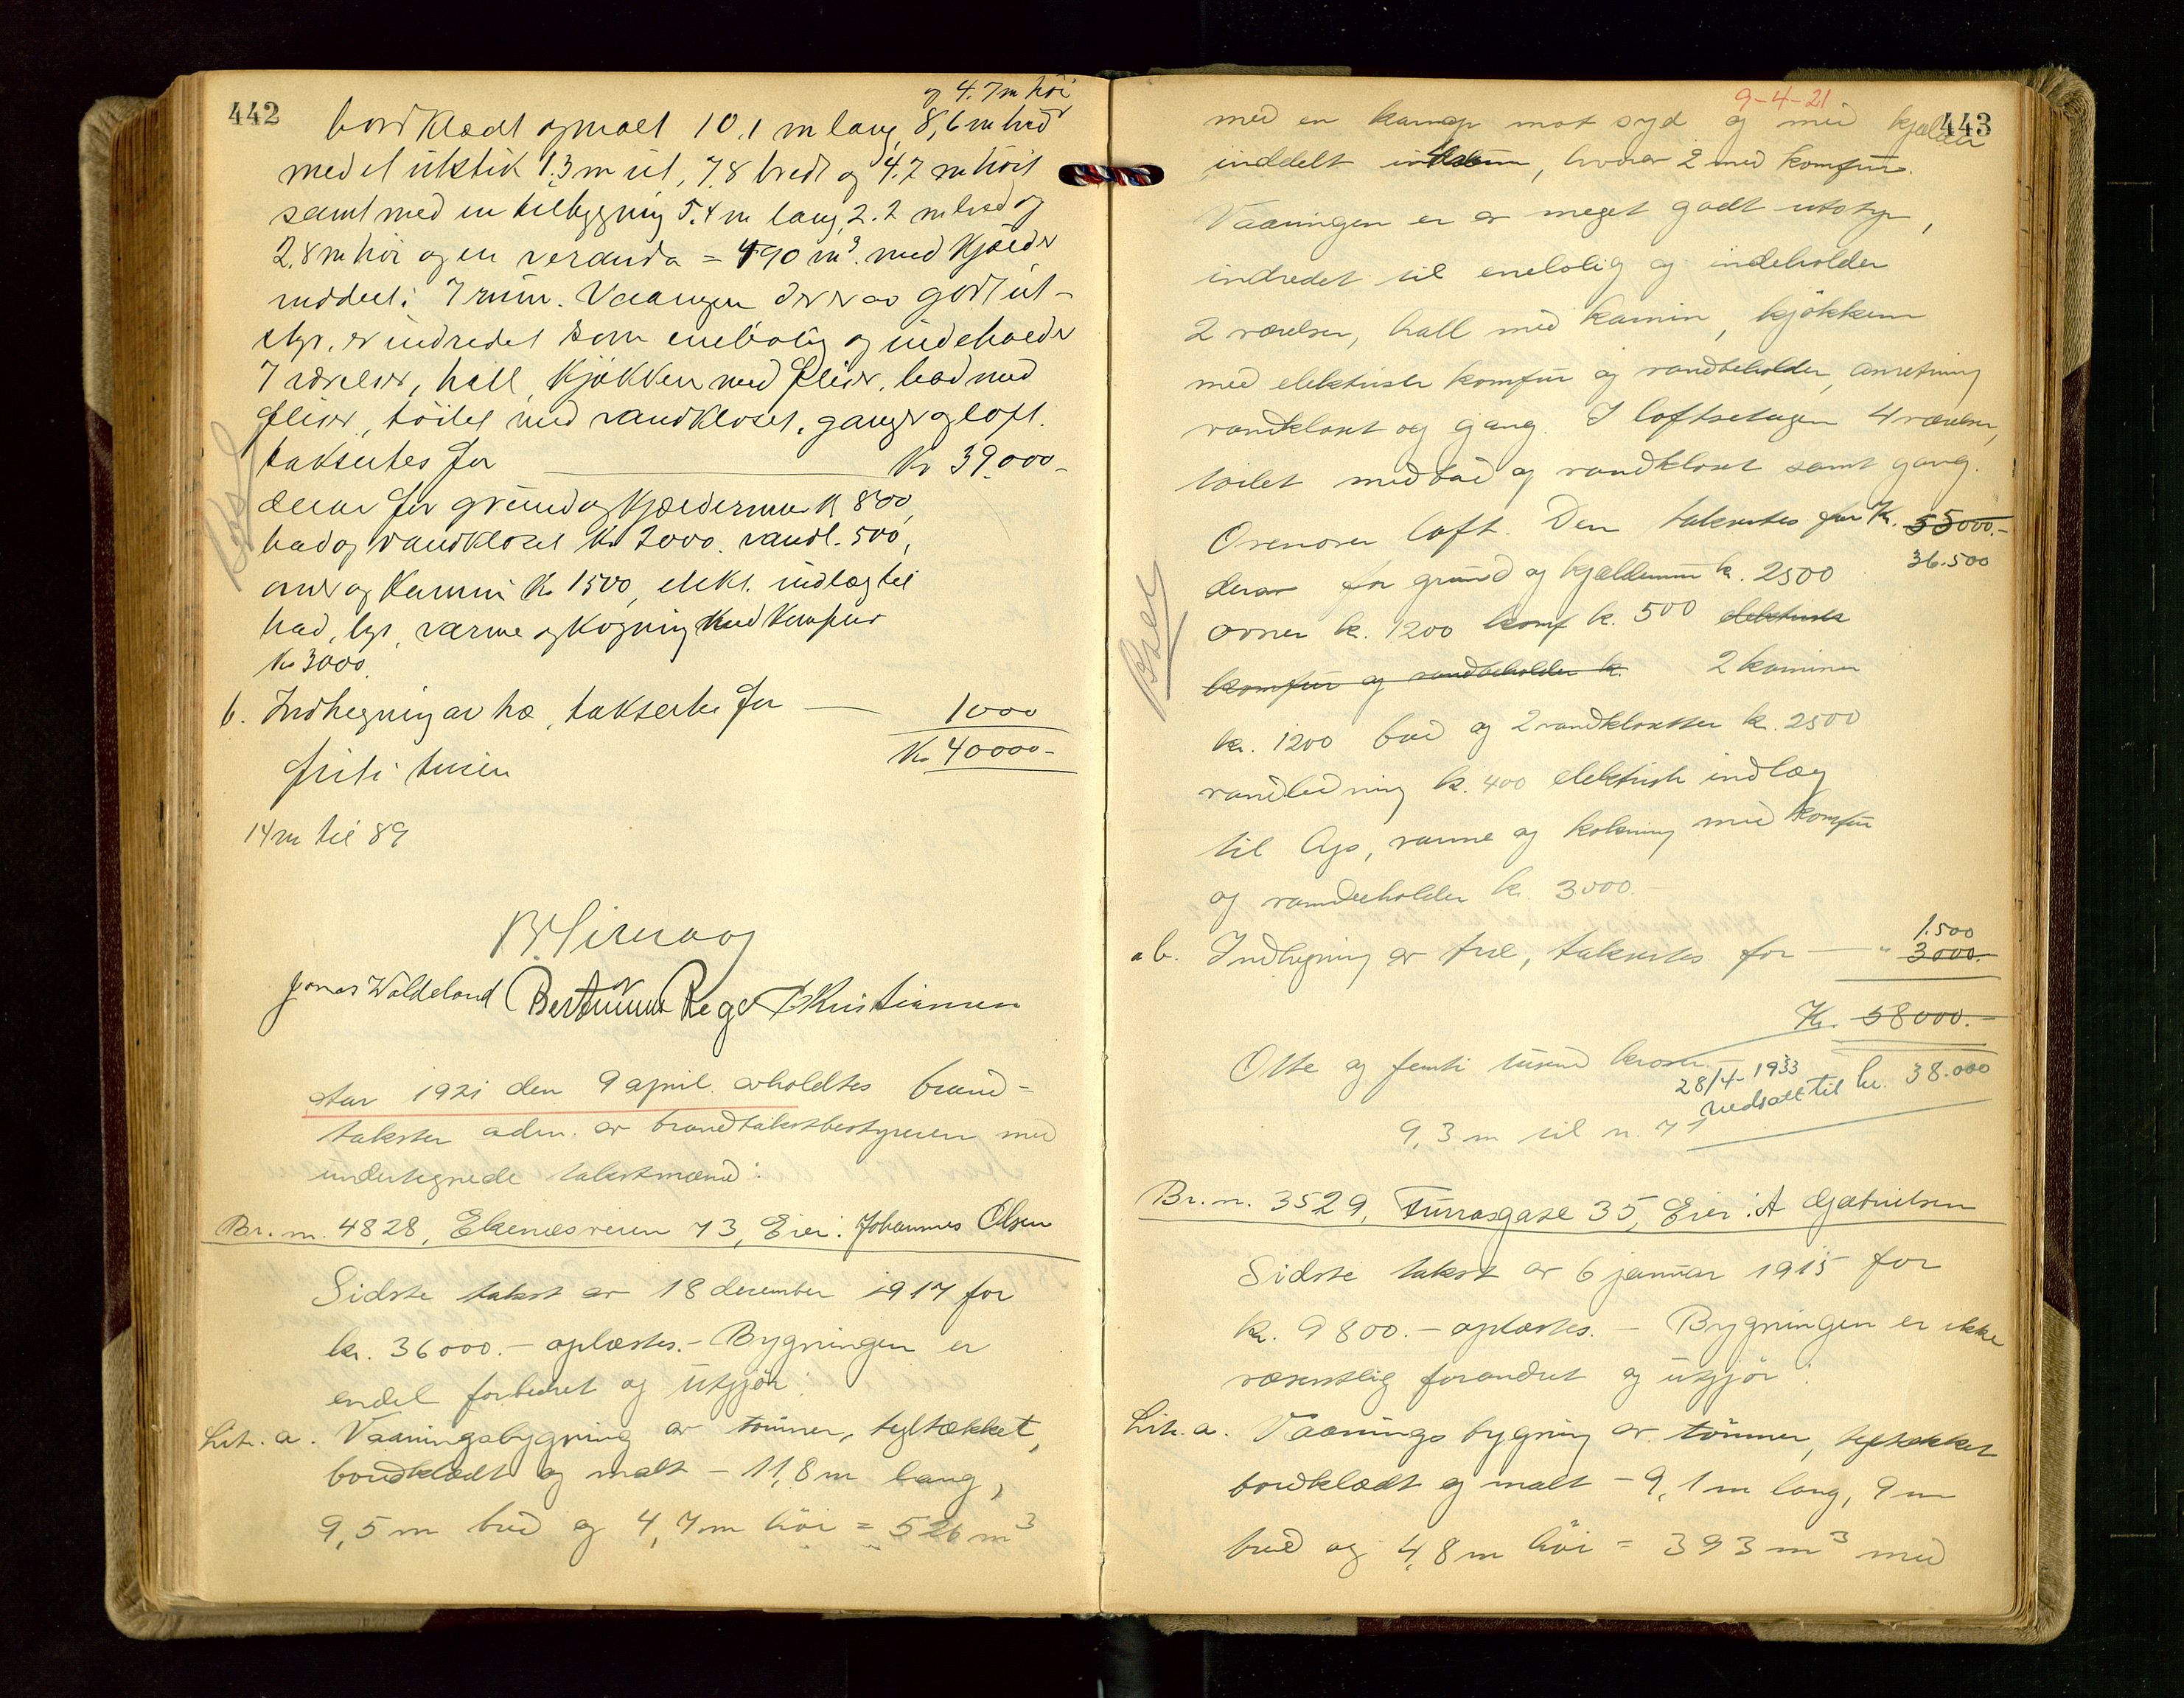 442
og 4.7 m höi
bordklædt og malt 10,1 m lang, 8,6 m bred
med et utstik 1.3 m ut, 7.8 bredt og 4.7 m höit
samt med en tilbygning 5.4 m lang, 2.2 m bred og
2.8 m höi og en veranda = 490 m³. med kjælder
inddelt i 7 rum. Vaaningen der er av godt ut-
styr, er indredet som enebolig og indeholder
7 værelser, hall, kjøkken med fliser, bad med
fliser, toilet med vandkloset, ganger og loft.
taksertes for Kr 39.000-
derav for grund og kjældermur kr 800,
bad og vandkloset Kr 2000. vandl. 500,
ovner og kamin Kr 1500, elekt. indlæg til
bad, lys, varme og kogning med komfur
Kr 3000.
b. Indhegning av træ, taksertes for — 1000
Kr 40000-
firti tusen
14 m til 89
Jonas Waldeland Bertinius Rege Kristiansen
Aar 1921 den 9 april avholdtes brand-
takster adm. av brandtakstbestyreren med
undertegnede takstmænd:
Br. nr. 4828, Ekenæsveien 73, Eier: Johannes Olsen
Sidste takst av 18 december 1917 for
kr. 36000.- oplæstes.- Bygningen er
endel forbedret og utgjör:
Lit. a. Vaaningsbygning av tömmer, tegltækket,
bordklædt og malt - 11,8 m lang,
9,5 m bred og 4,7 m höi = 526 m³
9-4-21
443
med en karnap mot syd og med kjælder
inddelt i rum, hvorav 2 med komfur.
Vaaningen er av meget godt utstyr,
indredet til enebolig og indeholder
2 værelser, hall med kamin, kjökken
med elektrisk komfur og vandbeholder, anretning
vandkloset og gang. I loftsetagen 4 værelser,
toilet med bad og vandkloset samt gang.
Ovenover loft. Den taksertes for Kr. 55000.-
36.500
derav for grund og kjældermur kr. 2500
ovner kr. 1200 komf kr. 500 elektrisk
komfur og vandbeholder kr. 2 kaminer
kr. 1200 bad og 2 vandklosetter kr. 2500
vandledning kr. 400 elektrisk indlæg
til lys, varme og kokning med komfur
og vandbeholder kr. 3000.-
1.500
b. Indhegning av træ, taksertes for — " 3000.-
Kr. 58000.-
Otte og femti tusend kroner.
28/4-1933
Nedsatt til kr. 38.000
9,3 m til n. 71
Br. n. 3529, Turrasgate 35, Eier: A Gjætnilsen
Sidste takst av 6 januar 1915 for
kr. 9800.- oplæstes. - Bygningen er ikke
væsentlig forandret og utgjör:
Lit. a. Vaanings bygning av tömmer, tegltækket
bordklædt og malt - 9,1 m lang, 9 m
bred og 4,8 m höi = 393 m³ med